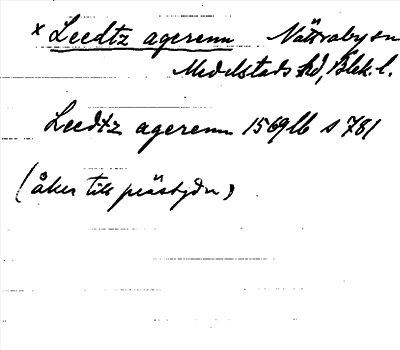 x Leedtz agerenn Nättraby sn
Medelstads hd, Blek. l.
Leedtz agerenn 1569 lb s 781
(åker till prästgdn)